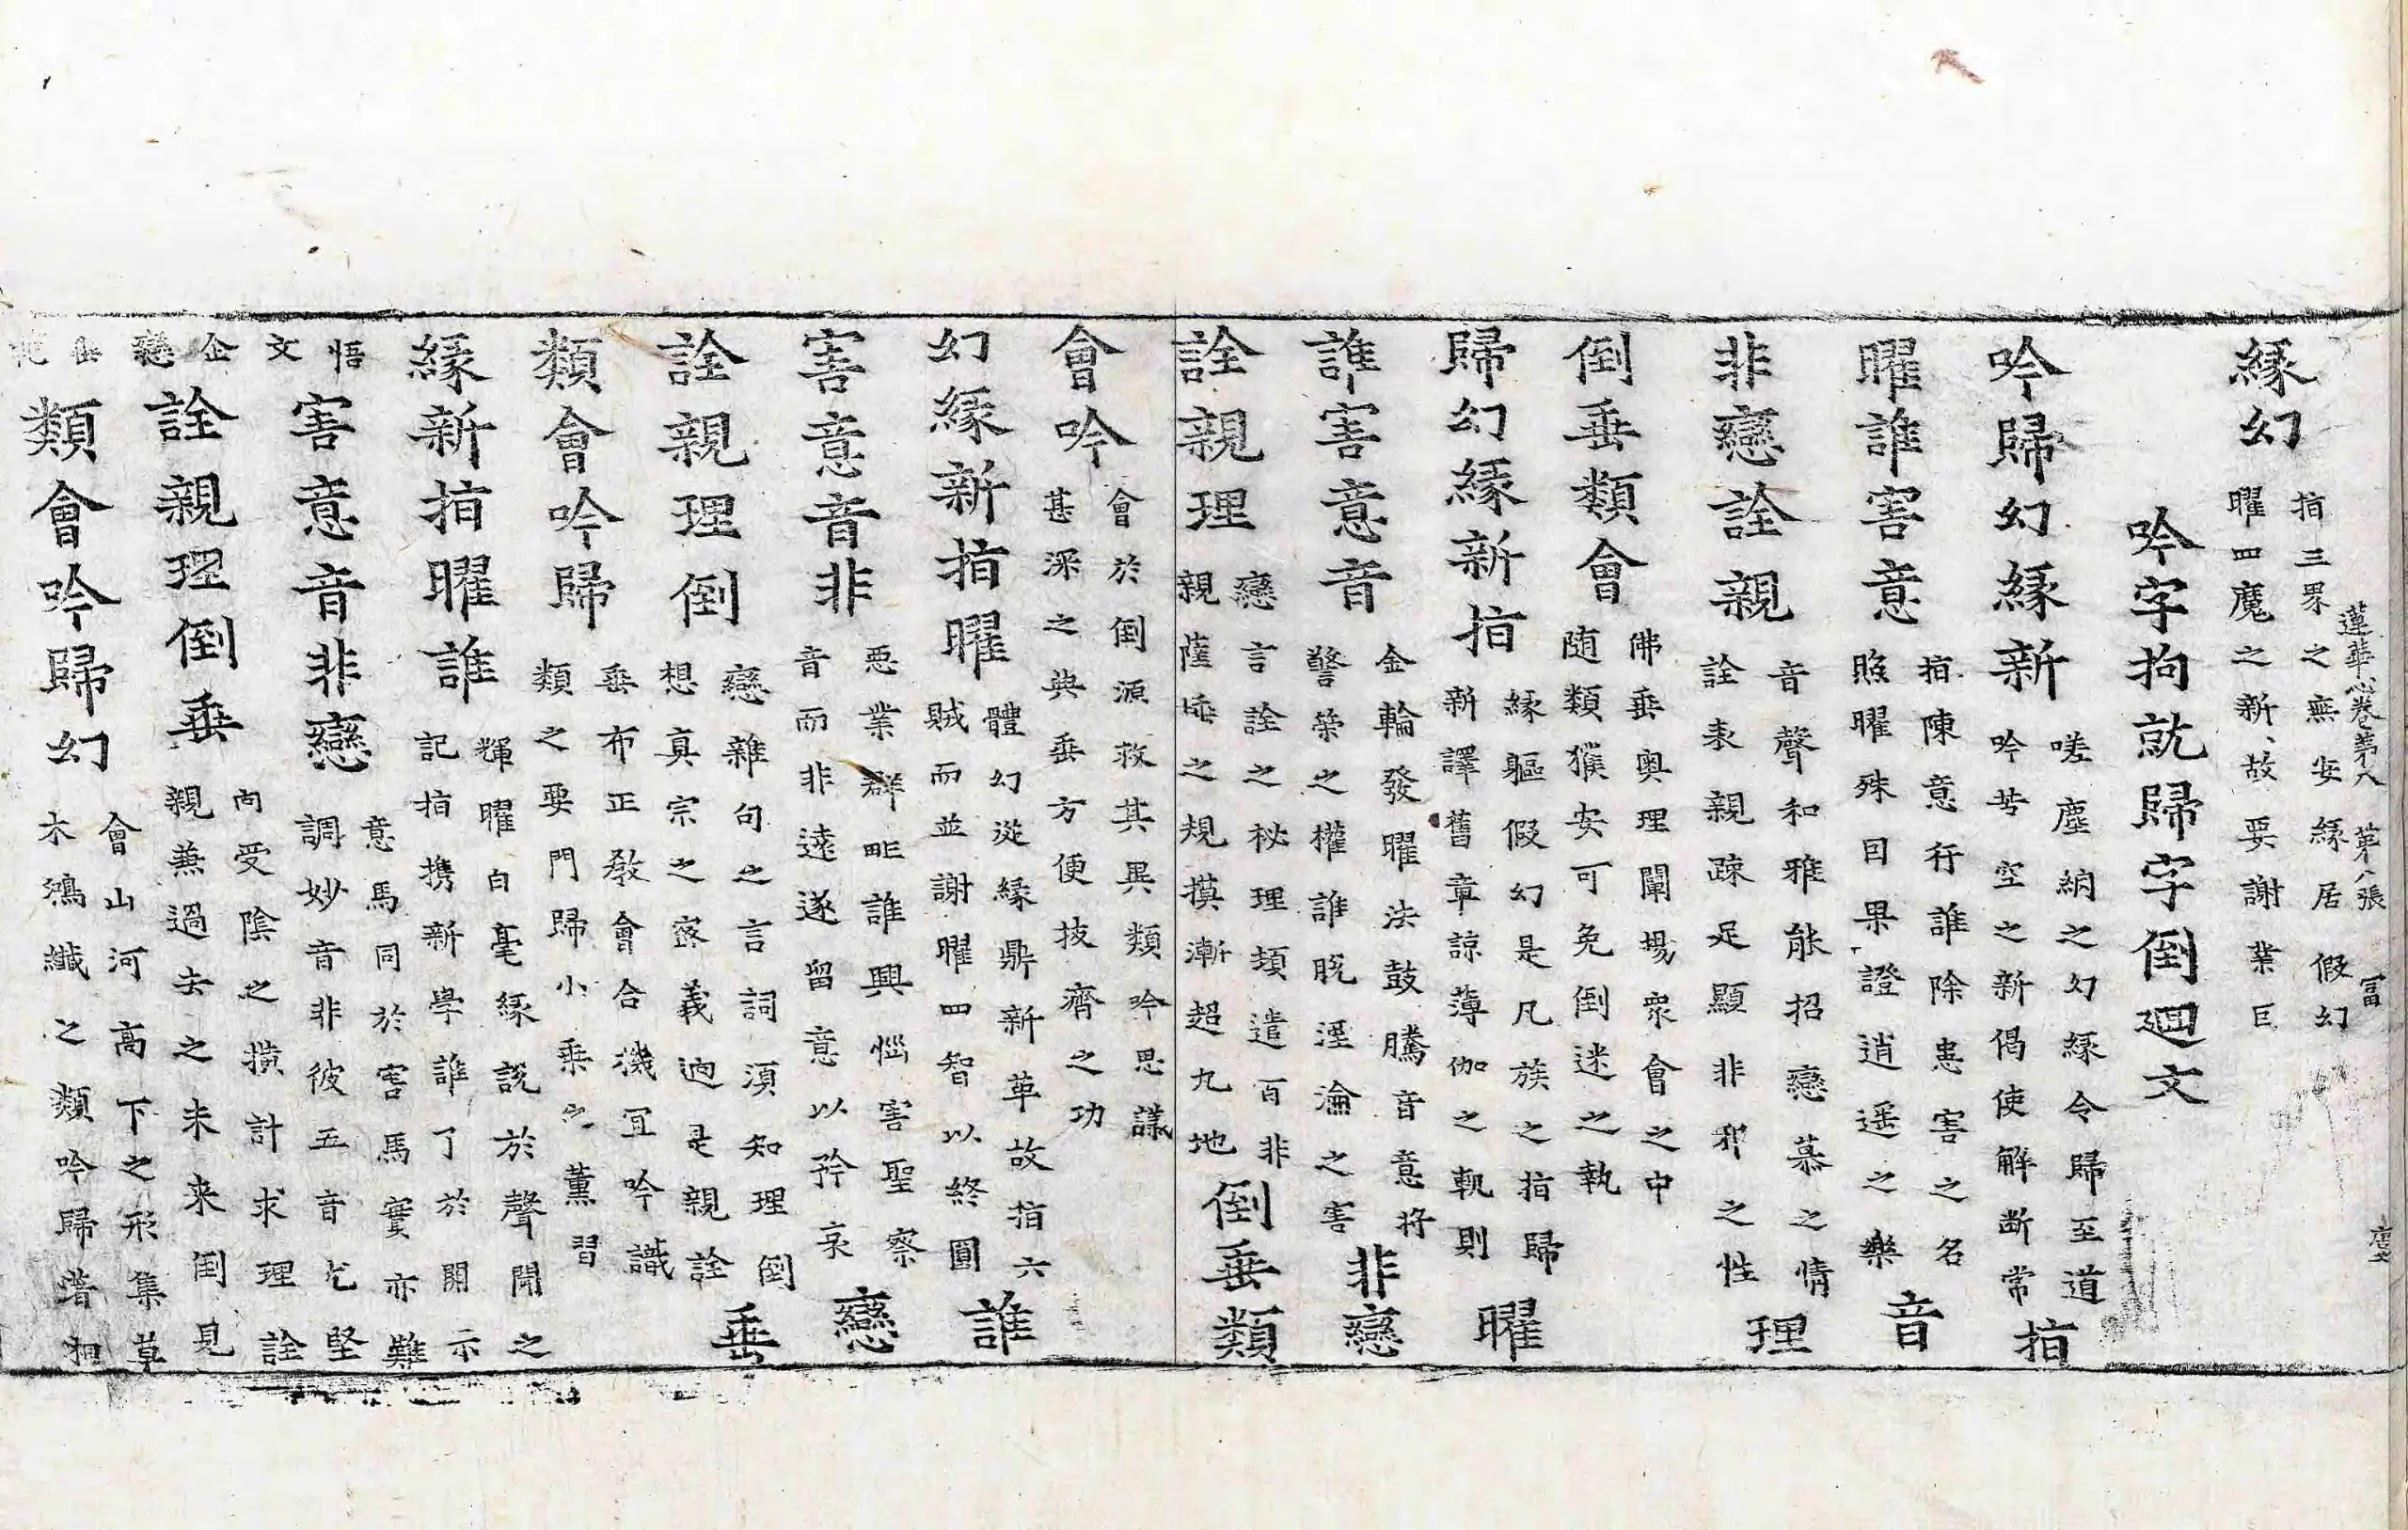 緣幻
指三界之無安緣居假幻
曜四魔之新故要謝業巨
蓮華心卷第八 第八張 冨
吟字拘就歸字倒廻文
吟歸幻緣新
嗟塵網之幻緣令歸至道
吟苦空之新偈使解断常
指
曜誰害意
指陳意行誰除恚害之名
照曜殊因果證逍遥之樂
音
非戀詮親
音聲和雅能招戀慕之情
詮表親疎足顯非邪之性
理
倒垂類會
佛垂奥理闡揚衆會之中
随類獲安可免倒迷之執
歸幻緣新指
緣軀假幻是凡族之指歸
新譯舊章諒薄伽之軌則
曜
誰害意音
金輪發曜法鼓騰音意将
警榮之權誰脫淫淪之害
非戀
詮親理
戀言詮之秘理頓遣百非
親薩埵之規摸漸超九地
倒垂類
會吟
會於倒源救其異類吟思議
甚深之典垂方便拔濟之功
幻緣新指曜
體幻從緣鼎新革故指六
賊而並謝曜四智以終圓
誰
害意音非
惡業群毗誰興惱害聖察
音而非遠遂留意以矜哀
戀
詮親理倒
戀雜句之言詞湏知理倒
想真宗之密義逈是親詮
垂
類會吟歸
垂布正教會合機宜吟識
類之要門歸小乘之薫習
緣新指曜誰
輝曜白毫緣說於聲聞之
記指携新學誰了於開示
悟
文
害意音非戀
意馬同於害馬實亦難
調妙音非彼五音乞堅
企
戀
詮親理倒垂
向受陰之橫計求理詮
親無過去之未来倒見
類會吟歸幻
會山河高下之形集草
木鴻纖之類吟歸普